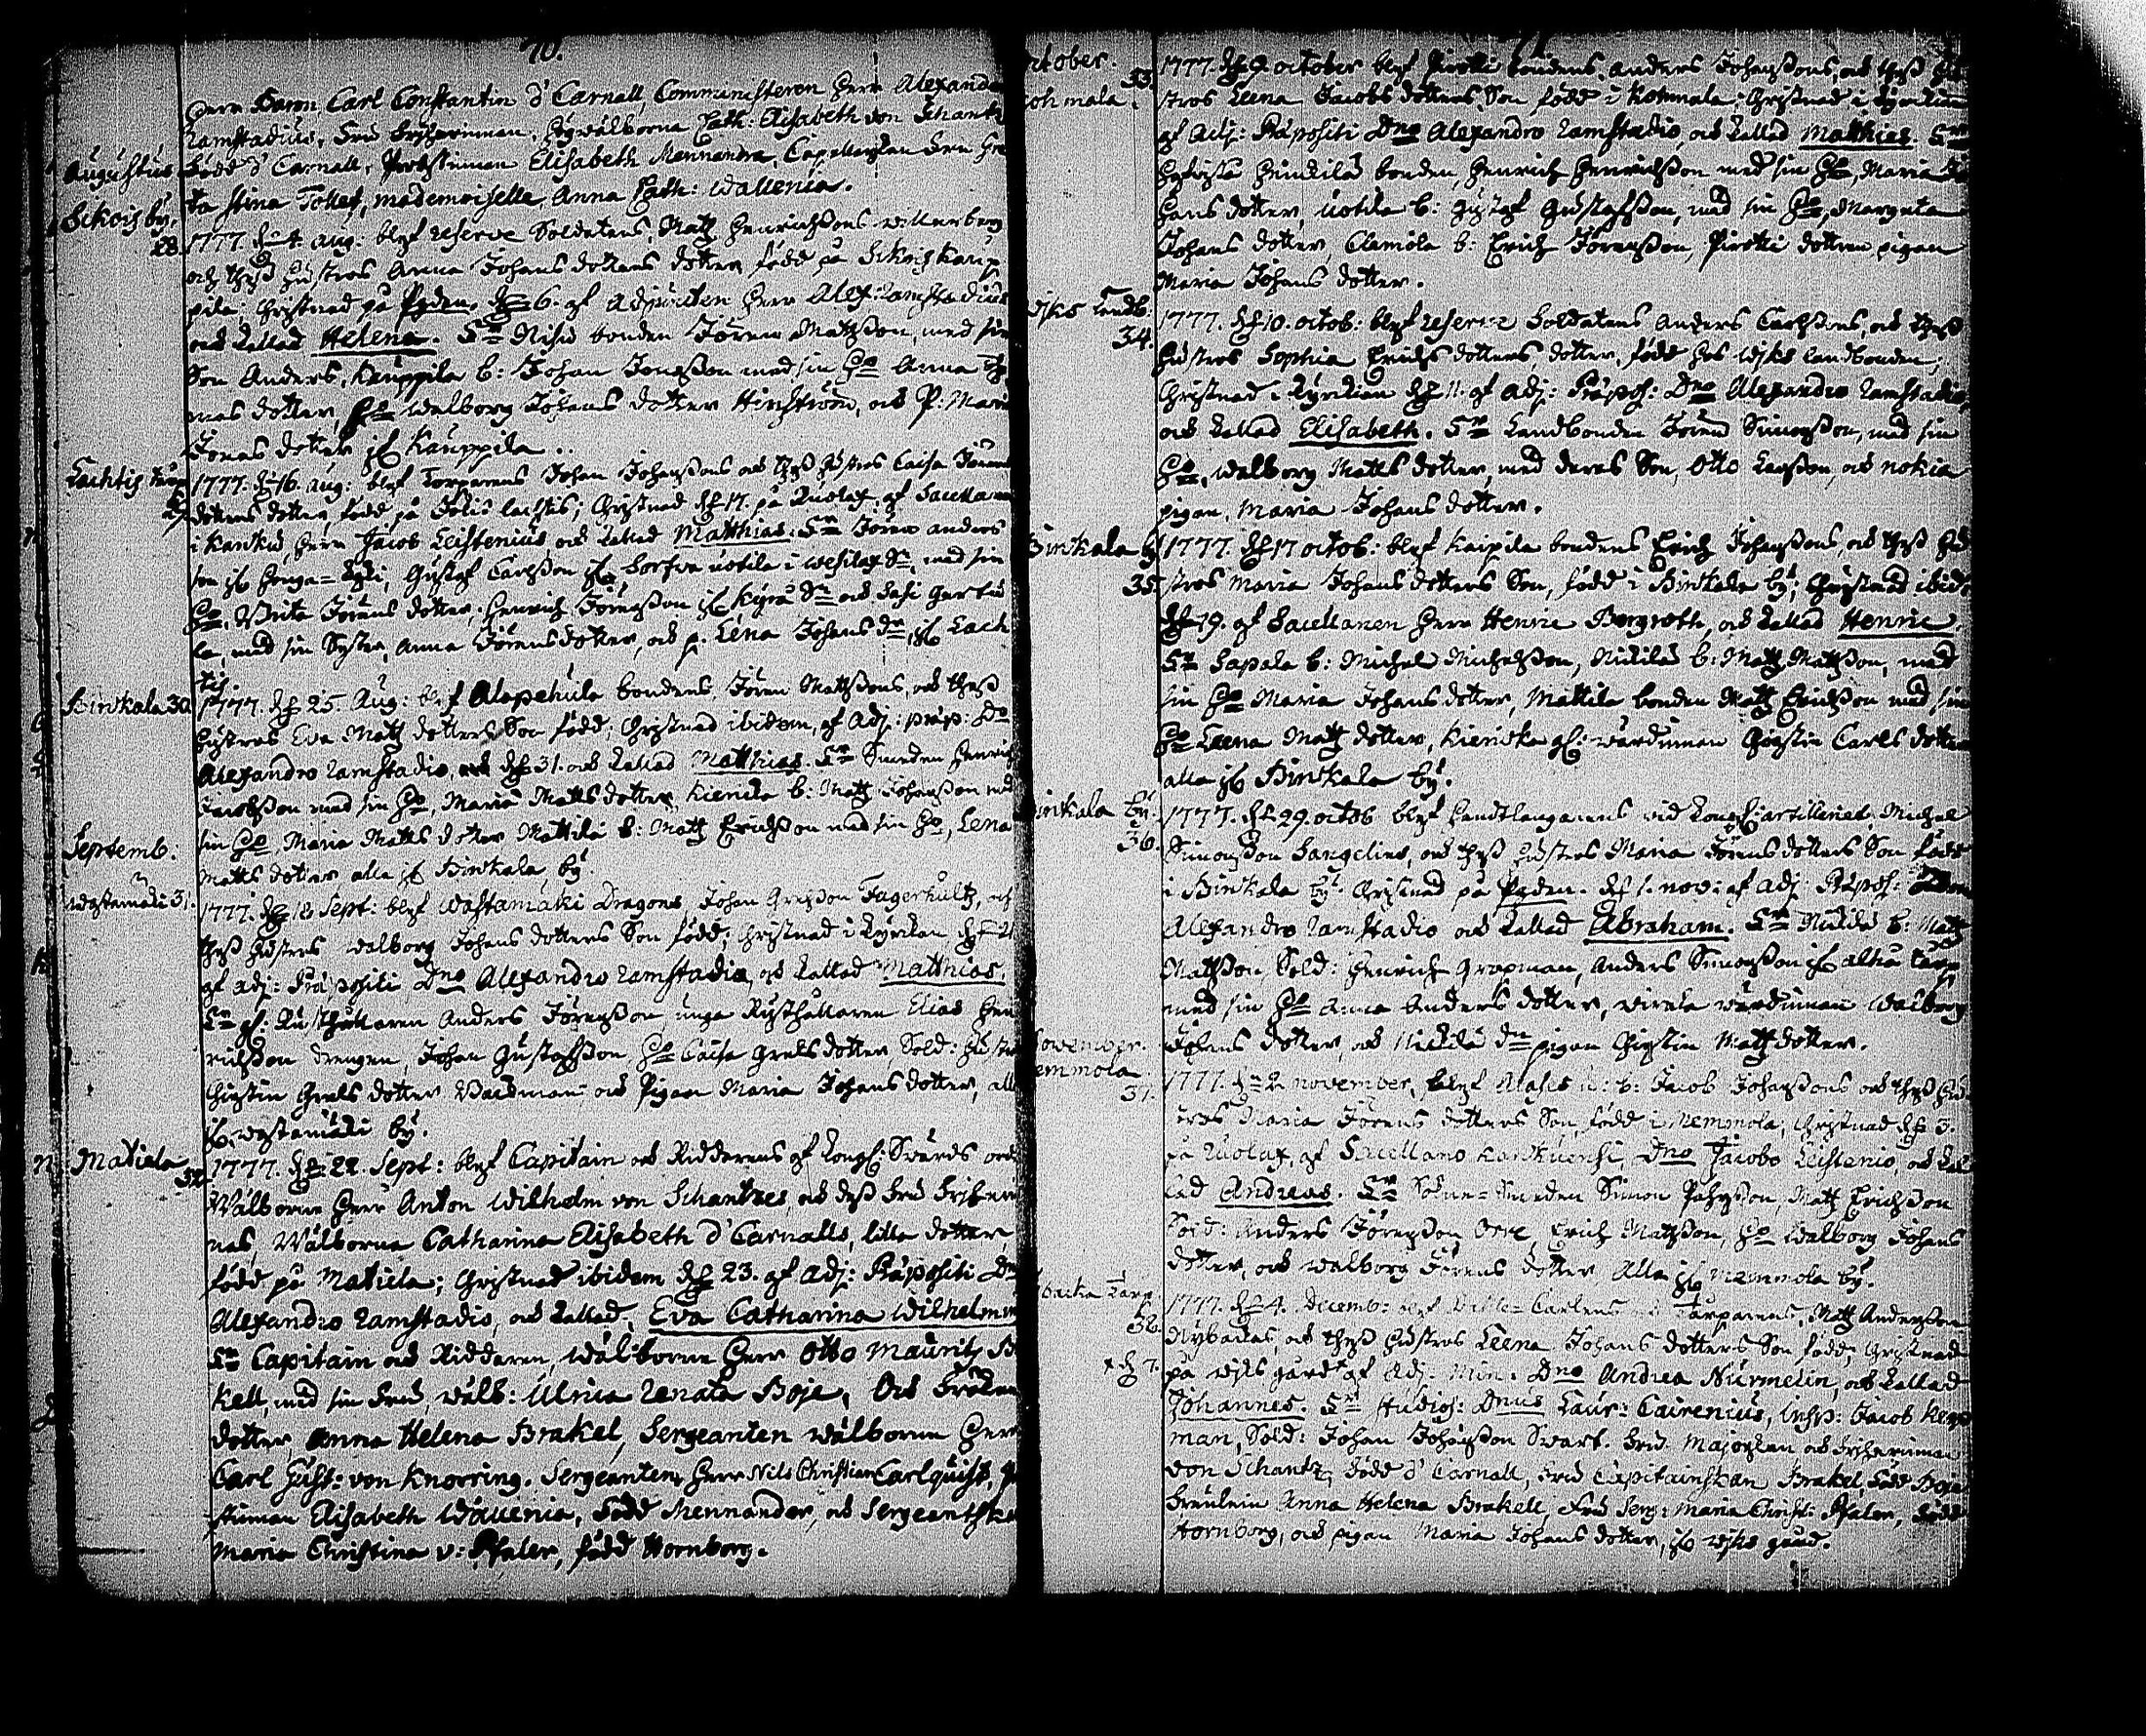 70.
Herr Baron Carl Constantin d'Carnall, Comministeron Herr Alexander
Ramstadius, Fru Friherinnan, Högwälborna Cath: Elisabeth von Schantz
född d'Carnall, Prostinnan Elisabeth Mennandra, Capellanskan Fru Gre
ta Stina Tolle, mademoiselle Anna Cath: Wallenia.
Augustus
Sikois by.
28.
1777. d. 4. Aug: blef reserve Soldatens, Matz Henrichssons Willberberg
och thess Hustros Anna Johans dotters dotter född på Sikois Kaup
pila; Christnad på Pyden. d. 6. af Adjuncten Herr Alex: Ramstadius
och kallad Helena. Sr Nisu bonden Jören Mattsson, med sin
Son Anders, Kauppila b: Johan Jonsson med sin Ho Anna Th
mas dotter, Ho Walborg Johans dotter Hinström, och P. Maria
Jonas dotter if: Kauppila.
Lachtis
29.
1777. d. 16. Aug: blef Torparens Johan Johanssons och thess Hustros Caisa Jörens
dotters dotter, född på Lachtis; Christnad d. 17. på Kuolax, af Sacellanen
i Karkku, Herr Jacob Leistenius och kallad Matthias. Sr Jören Anders
son if: Honga-Kyli, Gustaf Carlsson if: Sorfwa uotila i Wesilax Sn, med sin
Ho, Brita Jörens dotter, Henrich Jörensson if: Kyrö Sn och Sasi
la, med sin Syster, Anna Jörens dotter, och p. Lena Johans dr, if: Lach
tis
Sinkala 30.
1777. d. 25. Aug: blef Alapehula bondens Jören Mattssons, och thess
Hustros Eva Matz dotters Son född; Christnad ibidem, af Adj: præp: Do
Alexandro Ramstadio, d. 31. och kallad Matthias. Sr Smeden Henrich
Jacobsson med sin Ho, Maria Matts dotter, Kiencka b: Matz Johansson med
sin Ho, Maria Matts dotter Mattila b: Matz Erichsson med sin Ho, Lena
Matts dotter alla if: Sinkala by.
Septemb:
Wästamäki 31.
1777. d. 18 Sept: blef Wästamäki Dragons Johan Grelsson Fagerhultz, och
thess Hustros Walborg Johans dotters Son född; Christnad i Kyrckan d. 21
af Adj: Præpositi Dno Alexandro Ramstadio, och kallad Matthias.
Sr gl: Rusthållaren Anders Jörensson, unga Rusthållaren Elias Hen
richsson drengen, Johan Gustafsson, Ho Caisa Grels dotter, Sold: Hustro
Christin Grels dotter Waldman och Pigan Maria Johans dotter, alla
if: Wästamäki by.
Matiala
32.
1777. d. 22. Sept: blef Capitain och Ridderens af Kongl: Swärds ord
Wälborne Herr Anton Wilhelm von Schantzes, och dess Fru Friherin
nas, Wälborna Catharina Elisabeth d'Carnalls, lilla dotter,
född på Matiala; Christnad ibidem d. 23. af Adj: Præpositi Dno
Alexandro Ramstadio, och kallad, Eva Catharina Wilhelmin
Sr Capitain och Ridderen, Wälborne Herr Otto Maurits Bra
kell, med sin Fru, Wälb: Ulrica Renata Boje, Och Fröken
dotter, Anna Helena Brakel, Sergeanten Wälborne Herr
Carl Gust: von Knorring. Sergeanten Herr Nils Christian Carlquist, Pro
stinnan Elisabeth Wallenia, född Mennander, och Sergeantska
Maria Christina v: Pfaler, född Hornborg.
71
October.
33.
Kohmala.
1777. d. 9. October blef Pirtti bondens, Anders Johanssons, och thess Hu
stros Leena Jacobs dotters Son född i Kohmala; Christnad i Kyrckan
af Adj: Præpositi Dno Alexandro Ramstadio, och kallad Matthias. Sr
Heikilä bonden, Henrich Henrichsson med sin Ho, Maria
Hans dotter, Uotila b: Gustaf Gustafsson, med sin Ho, Margeta
Johans dotter, Clemola b: Erich Jörensson, Pirtti dottren pigan
Maria Johans dotter.
Wiks Landb.
34.
1777. d. 10. octob: blef reserve Soldatens Anders Carlssons, och thess
Hustros Sophia Erichs dotters, dotter, född hos Wiks landbonden;
Christnad i Kyrckan d. 11. af Adj: Præpos: Dno Alexandro Ramstadio,
och kallad Elisabeth. Sr Landbonden Jören Simonsson, med sin
Ho, Walborg Matts dotter, med deras Son, Otto Larsson, och Nokia
pigan, Maria Johans dotter.
Sinkala by
35.
1777. d. 17 octob: blef Kaipila bondens Erich Johanssons, och thess Hu
stros Maria Johans dotters Son, född i Sinkala by; Christnad ibid:
d. 19. af Sacellanen Herr Henric Bergroth, och kallad Henric.
Sr Sapala b: Michel Michelsson, Nickilä b: Matz Mattsson, med
sin Ho Maria Johans dotter, Mattila bonden Matz Erichsson med sin
Ho Leena Matz dotter, Kiencka gl: wärdinnan Christin Carls dotter
alla if: Sinkala by.
Sinkala by.
36.
1777. d. 29. octob blef Handtlangarens wid Kongl: artilleriet, Michel
Simonsson Sangelins, och thess Hustros Maria Jörens dotters Son född
i Sinkala by. Christnad på Pyden. d. 1. nov: af Adj: Præpos: Dno
Alexandro Ramstadio och kallad Abraham. Sr Nickilä b: Matz
Mattsson, Sold: Henrich Grapman, Anders Simonsson if: Alhia torp
med sin Ho Anna Anders dotter, Wirala wärdinnan Walborg
Johans dotter, och Nickilä dn pigan Christin Matz dotter.
November.
Memmola.
37.
1777. d. 2 november, blef Alasis b: Jacob Johanssons och thess Hu
stros Maria Jörens dotters Son, född i Memmola; Christnad d. 3.
på Kuolax, af Sacellano Karkkuensi, Dno Jacobo Leistenio, och kal
lad Andreas. Sr Sokne-Smeden Simon Johansson, Matz Erichsson
Sold: Anders Jörensson Orre, Erich Mattsson, Ho Walborg Johans
dotter, och Walborg Jörens dotter, Alla if: Memmola by.
torp.
38.
+ d. 7.
1777. d. 4. Decemb: blef Carlens Torparens, Matz Andersson
Nybackas, och thess Hustros Leena Johans dotters Son född; Christnad
på Wiks gård+ af Adj. Min. Dno Andrea Nurmelin, och kallad
Johannes. Sr Studios: Dnus Laur: Cairenius, Insp: Jacob
man, Sold: Johan Johansson Swart. Fru Majorskan och Friherinnan
von Schantz, född d'Carnall, Fru Capitainskan Brakel, född Boje
Fraulein Anna Helena Brakell, Fru Serg: Maria Christ: Pfaler, född
Hornborg, och pigan Maria Johans dotter, if: Wiks gård.